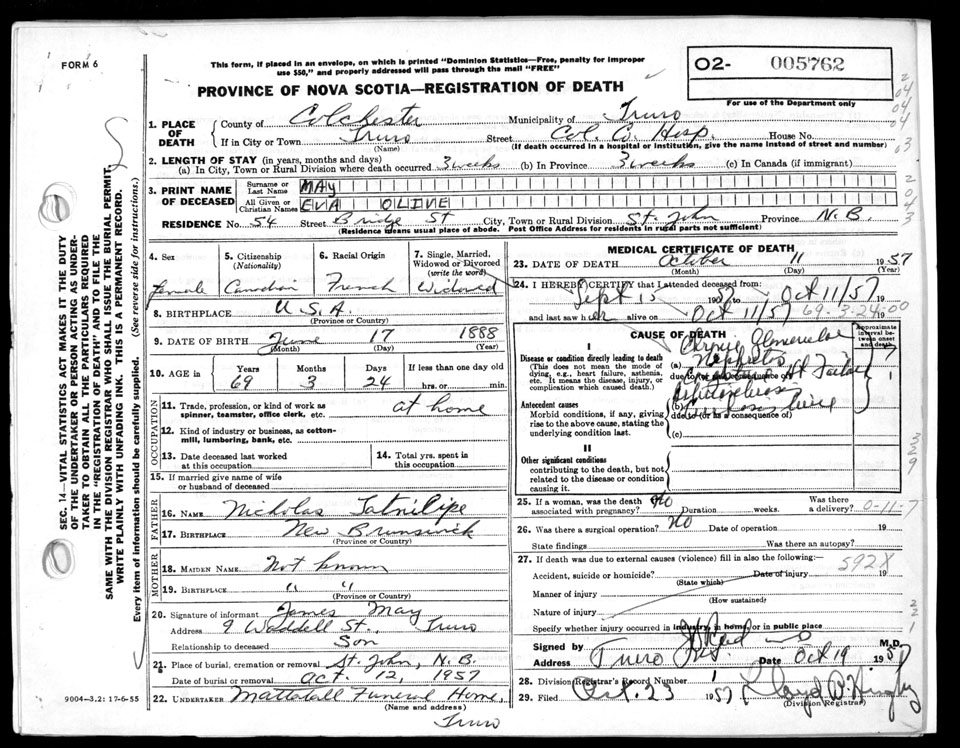 FORM 6
This form, if placed in an envelope, on which is printed "Dominion Statistics—Free, penalty for improper
use $50," and properly addressed will pass through the mail "FREE"
O2- 005762
For use of the Department only
PROVINCE OF NOVA SCOTIA—REGISTRATION OF DEATH
1. PLACE OF DEATH
County of Colchester Municipality of Truro
If in City or Town Truro Street Col. Co. Hosp. House No.
(Name) (If death occurred in a hospital or institution, give the name instead of street and number)
2. LENGTH OF STAY (in years, months and days)
(a) In City, Town or Rural Division where death occurred 3 weeks (b) In Province 3 weeks (c) In Canada (if immigrant)
3. PRINT NAME OF DECEASED
Surname or Last Name MAY
All Given or Christian Names EVA OLIVE
RESIDENCE No. 54 Street Bridge St City, Town or Rural Division St. John Province N.B.
(Residence means usual place of abode. Post Office Address for residents in rural parts not sufficient)
SEC. 14—VITAL STATISTICS ACT MAKES IT THE DUTY
OF THE UNDERTAKER OR PERSON ACTING AS UNDER-
TAKER TO OBTAIN ALL THE PARTICULARS REQUIRED
IN THE "REGISTRATION OF DEATH" AND TO FILE THE
SAME WITH THE DIVISION REGISTRAR WHO SHALL ISSUE THE BURIAL PERMIT.
WRITE PLAINLY WITH UNFADING INK. THIS IS A PERMANENT RECORD.
Every item of information should be carefully supplied. (See reverse side for instructions.)
4. Sex female
5. Citizenship (Nationality) Canadian
6. Racial Origin French
7. Single, Married, Widowed or Divorced (write the word) Widowed
8. BIRTHPLACE U.S.A.
(Province or Country)
9. DATE OF BIRTH June 17 1888
(Month) (Day) (Year)
10. AGE in Years 69 Months 3 Days 24 If less than one day old hrs. or min.
OCCUPATION
11. Trade, profession, or kind of work as spinner, teamster, office clerk, etc. at home
12. Kind of industry or business, as cotton-mill, lumbering, bank, etc.
13. Date deceased last worked at this occupation
14. Total yrs. spent in this occupation
15. If married give name of wife or husband of deceased
FATHER
16. NAME Nicholas
17. BIRTHPLACE New Brunswick
(Province or Country)
MOTHER
18. MAIDEN NAME Not known
19. BIRTHPLACE " "
(Province or Country)
20. Signature of informant James May
Address 9 Waddell St., Truro
Relationship to deceased Son
21. Place of burial, cremation or removal St. John, N.B.
Date of burial or removal Oct. 12, 1957
22. UNDERTAKER Mattatall Funeral Home,
(Name and address)
Truro
9004—3.2: 17-6-55
MEDICAL CERTIFICATE OF DEATH
23. DATE OF DEATH October 11 1957
(Month) (Day) (Year)
24. I HEREBY CERTIFY that I attended deceased from:
Sept 15 1957 to Oct 11/57 19
and last saw her alive on Oct 11/57 19
69-3-24-00
CAUSE OF DEATH
Approximate interval between onset and death
I
Disease or condition directly leading to death
(This does not mean the mode of dying, e.g., heart failure, asthenia, etc. It means the disease, injury, or complication which caused death.)
(a)
due to (or as a consequence of)
Antecedent causes
Morbid conditions, if any, giving rise to the above cause, stating the underlying condition last.
(b)
due to (or as a consequence of)
(c)
II
Other significant conditions
contributing to the death, but not related to the disease or condition causing it.
25. If a woman, was the death associated with pregnancy? No Duration weeks. Was there a delivery?
0-11-7
26. Was there a surgical operation? No Date of operation 19
State findings Was there an autopsy?
27. If death was due to external causes (violence) fill in also the following:—
592X
Accident, suicide or homicide? Date of injury 19
(State which)
Manner of injury
(How sustained)
Nature of injury
Specify whether injury occurred in industry, in home, or in public place
Signed by M.D.
Address Truro Date Oct 19 1957
28. Division Registrar's Record Number
29. Filed Oct. 23 1957
(Division Registrar)